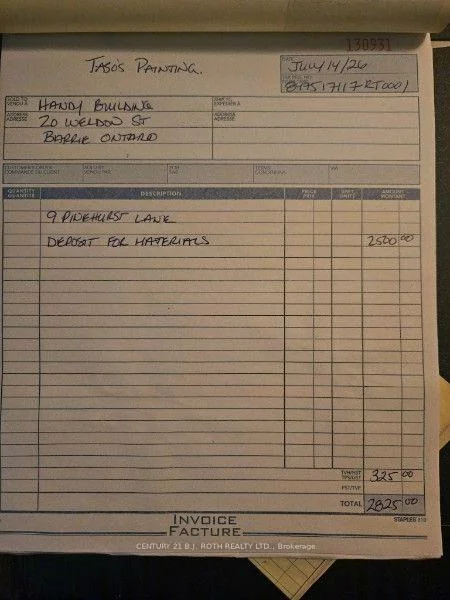 130931
TASO'S PAINTING.
DATE JULY/14/26
819517117 RT0001
SOLD TO
VENDU À HANDY BUILDING
SHIP TO
EXPÉDIER À
ADDRESS
ADRESSE 20 WELDON ST
ADDRESS
ADRESSE
BARRIE ONTARIO
CUSTOMER'S ORDER
COMMANDE DU CLIENT
SOLD BY
VENDU PAR
FOB
TERMS
CONDITIONS
VIA
QUANTITY
QUANTITÉ
DESCRIPTION
PRICE
PRIX
UNIT
UNITÉ
AMOUNT
MONTANT
9 PINEHURST LANE
DEPOSIT FOR MATERIALS 2500 00
TVH/HST
TPS/GST 325 00
PST/TVP
TOTAL 2825 00
INVOICE
FACTURE
STAPLES
CENTURY 21 B.J. ROTH REALTY LTD., Brokerage